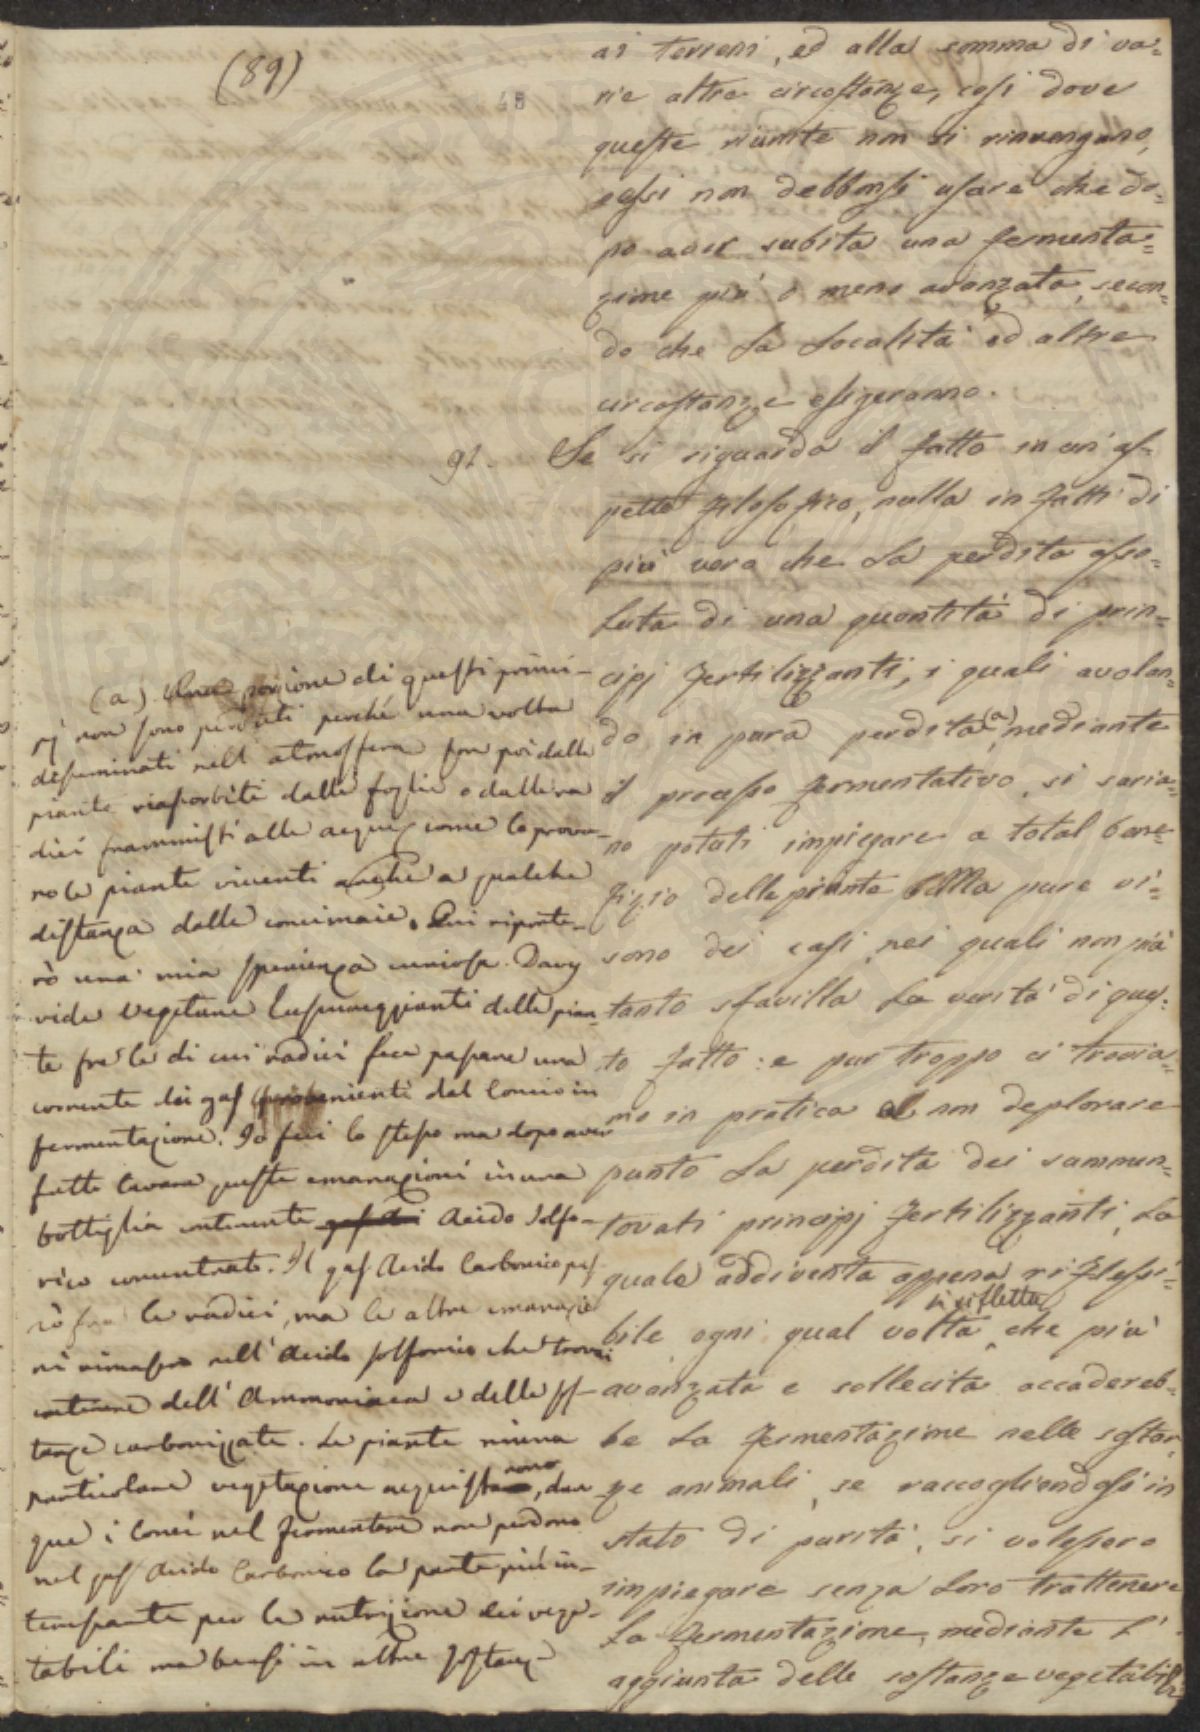 (89)
48
ai terreni, ed alla somma di va=
rie altre circostanze, così dove
queste riunite non si rinvengano,
essi non debbonsi usare che do=
po aver subita una fermenta=
zione più o meno avanzata, secon=
do che la località ed altre
circostanze esigeranno.
91. Se si riguarda il fatto in un as=
petto filosofico, nulla in fatti di
più vero che la perdita asso=
luta di una quantità di prin=
cipj fertilizzanti, i quali avolan=
do in pura perdita (a) mediante
il processo fermentativo, si saria=
no potuti impiegare a total bene=
fizio delle piante. Ma pure vi
sono dei casi nei quali non più
tanto sfavilla la verità di ques=
to fatto: e pur troppo ci trovia=
mo in pratica a non deplorare
punto la perdita dei summen=
tovati principj fertilizzanti, la
quale addiventa appena riflessi=
bile ogni qual volta si rifletta che più
avanzata e sollecita accadereb=
be la fermentazione nelle sostan=
ze animali, se raccogliendosi in
stato di purità, si volessero
impiegare senza loro trattenere
la fermentazione, mediante l'
aggiunta delle sostanze vegetabili
(a) Una porzione di questi princi=
pj non sono perduti perché una volta
desseminati nell'atmosfera son poi dalle
piante riassorbiti dalle foglie o dalle ra
dici frammisti alle acque, come lo prova=
no le piante viventi anche a qualche
distanza dalle concimaie. Qui riporte=
rò una mia sperienza curiosa. Davy
vide vegetare lussureggianti delle pian=
te fra le di cui radici fece passare una
corrente dei gas provenienti dal concio in
fermentazione. Io feci lo stesso ma dopo aver
fatte lavare queste emanazioni in una
bottiglia contenente Acido Solfo=
rico concentrato. Il gas Acido Carbonico pas
sò fra le radici, ma le altre emanazio
ni rimasero nell'Acido solforico che trovai
contenere dell'Ammoniaca e delle sos=
tanze carbonizzate. Le piante niuna
particolare vegetazione acquistarono, dun
que i Conci nel fermentare non perdono
nel gas Acido Carbonico la parte più in=
teressante per la nutrizione dei vege=
tabili ma bensì in altre sostanze